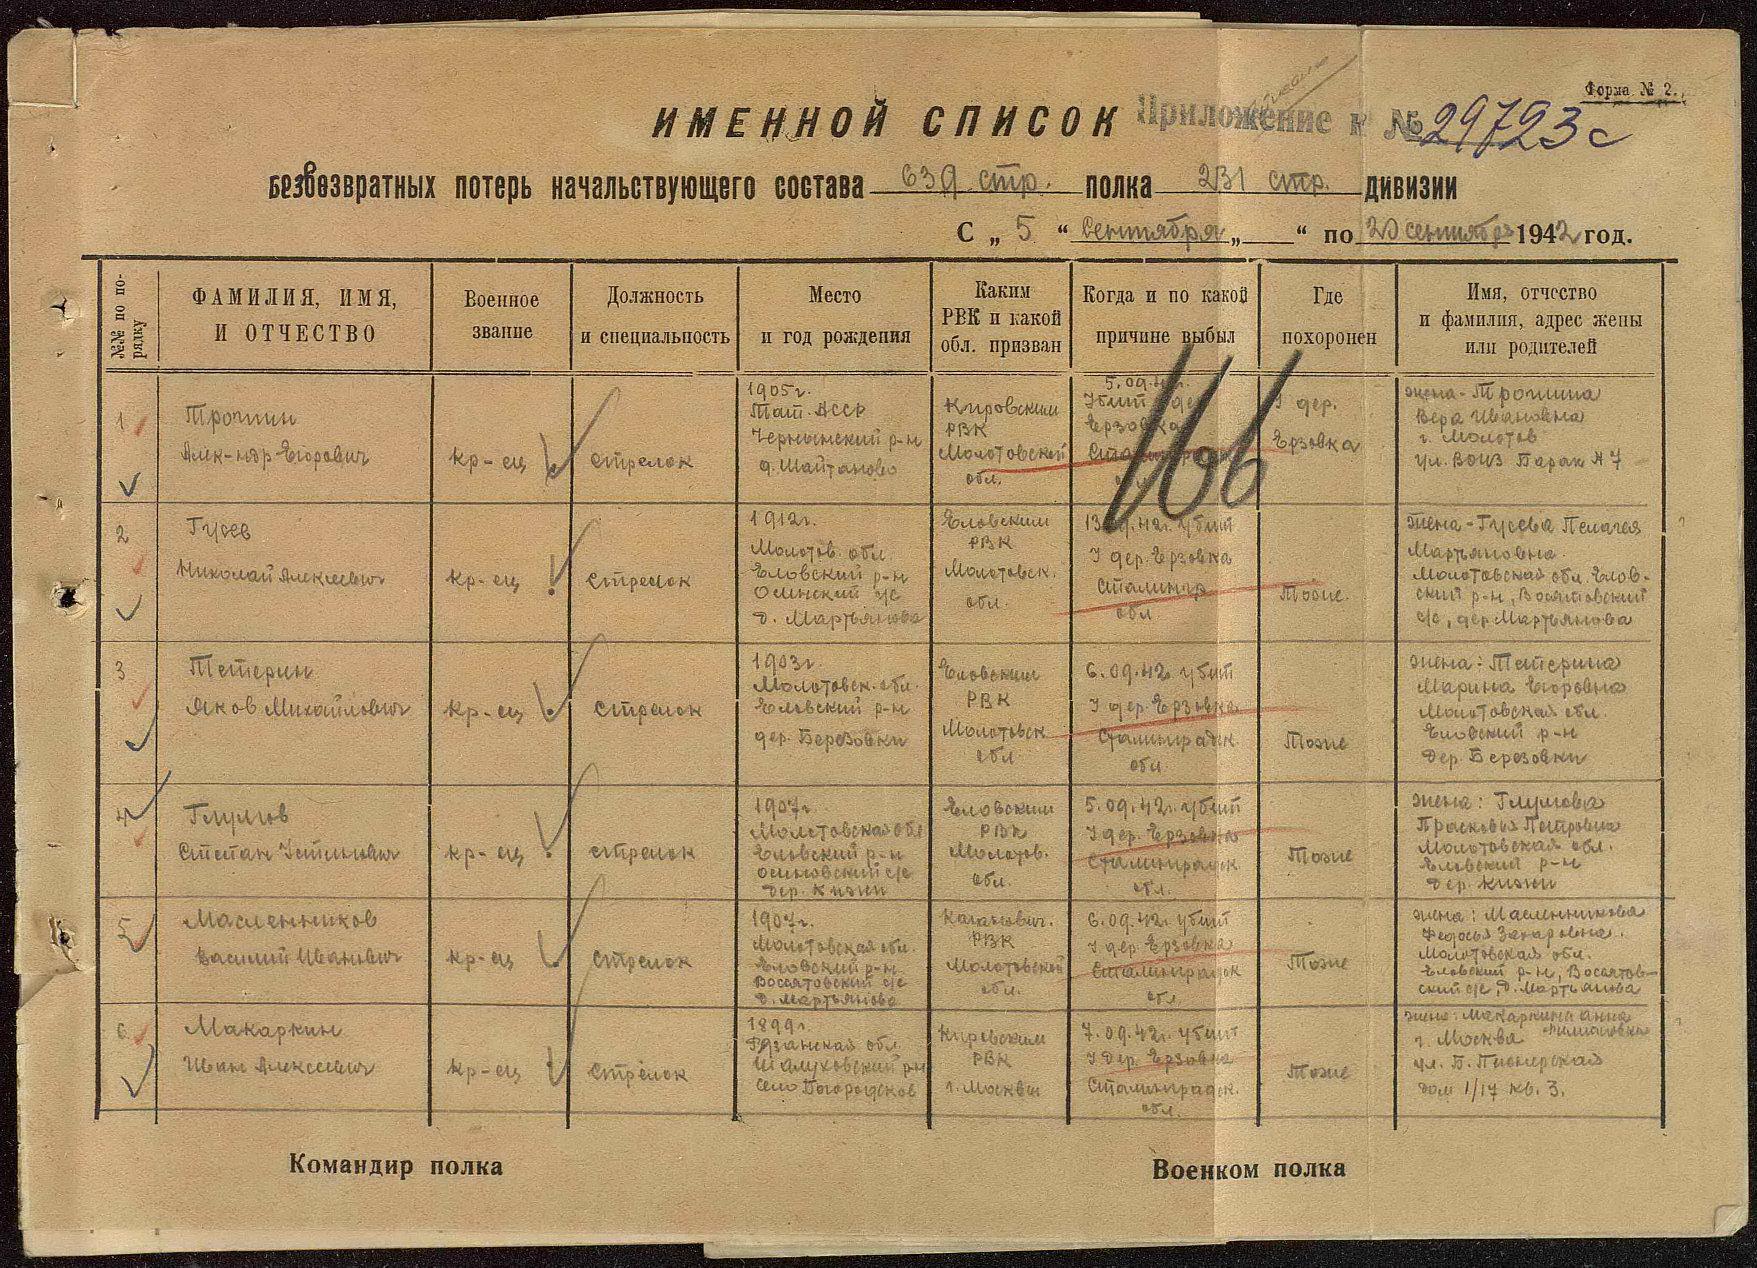 Форма № 2.
ИМЕННОЙ СПИСОК
Приложение к № 29723с
безвозвратных потерь начальствующего состава 639 стр. полка 231 стр. дивизии
С „ 5 “ Сентября „ “ по 20 сентября 1942 год.
№№ по по-рядку
ФАМИЛИЯ, ИМЯ,
И ОТЧЕСТВО
Военное
звание
Должность
и специальность
Место
и год рождения
Каким
РВК и какой
обл. призван
Когда и по какой
причине выбыл
Где
похоронен
Имя, отчество
и фамилия, адрес жены
или родителей
166
1
Трошин
Алек-ндр Егорович
кр-ец
стрелок
1905г.
Тат. АССР
р-н
д. Шайтаново
Кировским
РВК
Молотовской
обл.
5.09.42г.
Убит дер
Ерзовка
обл.
дер.
Ерзовка
жена - Трошина
Вера Ивановна
г. Молотов
ул. Барак № 7
2
Гусев
Николай Алексеевич
кр-ец
стрелок
1912г.
Молотов. обл.
Еловский р-н
с/с
д. Мартьянова
Еловским
РВК
Молотовск.
обл.
13.09.42г. убит
дер. Ерзовка
Сталингр
обл
Тоже.
жена - Гусева Пелагея
Мартьяновна.
Молотовская обл. Елов-
ский р-н,
с/с, дер. Мартьянова
3
Тетерин
Яков Михайлович
кр-ец
стрелок
1903г.
Молотовск. обл.
Еловский р-н
дер. Березовки
Еловским
РВК
Молотовск
обл
6.09.42г. убит
дер. Ерзовка
Сталинградск.
обл.
Тоже
жена: Тетерина
Марина Егоровна
Молотовская обл.
Еловский р-н
дер. Березовки
4
Глумов
Степан
кр-ец
стрелок
1907г.
Молотовская обл
Еловский р-н
Осиновский с/с
дер.
Еловским
РВК
Молотов.
обл.
5.09.42г. убит
дер. Ерзовка
Сталинградск
обл.
Тоже
жена: Глумова
Прасковья Петровна
Молотовская обл.
Еловский р-н
дер.
5
Масленников
Василий Иванович
кр-ец
стрелок
1907г.
Молотовская обл.
Еловский р-н
с/с
д. Мартьянова
Каганович.
РВК
Молотовской
обл.
6.09.42г. убит
дер. Ерзовка
Сталинградск
обл.
Тоже
жена: Масленникова
Федосья Захаровна.
Молотовская обл.
Еловский р-н,
ский с/с, д. Мартьянова
6
Макаркин
Иван Алексеевич
кр-ец
стрелок
1899г.
Рязанская обл.
р-н
село
Кировским
РВК
г. Москвы
7.09.42г. убит
дер. Ерзовка
Сталинградск.
обл.
Тоже
жена: Макаркина Анна
г. Москва
ул. Б. Пионерская
дом 1/17 кв. 3.
Командир полка
Военком полка